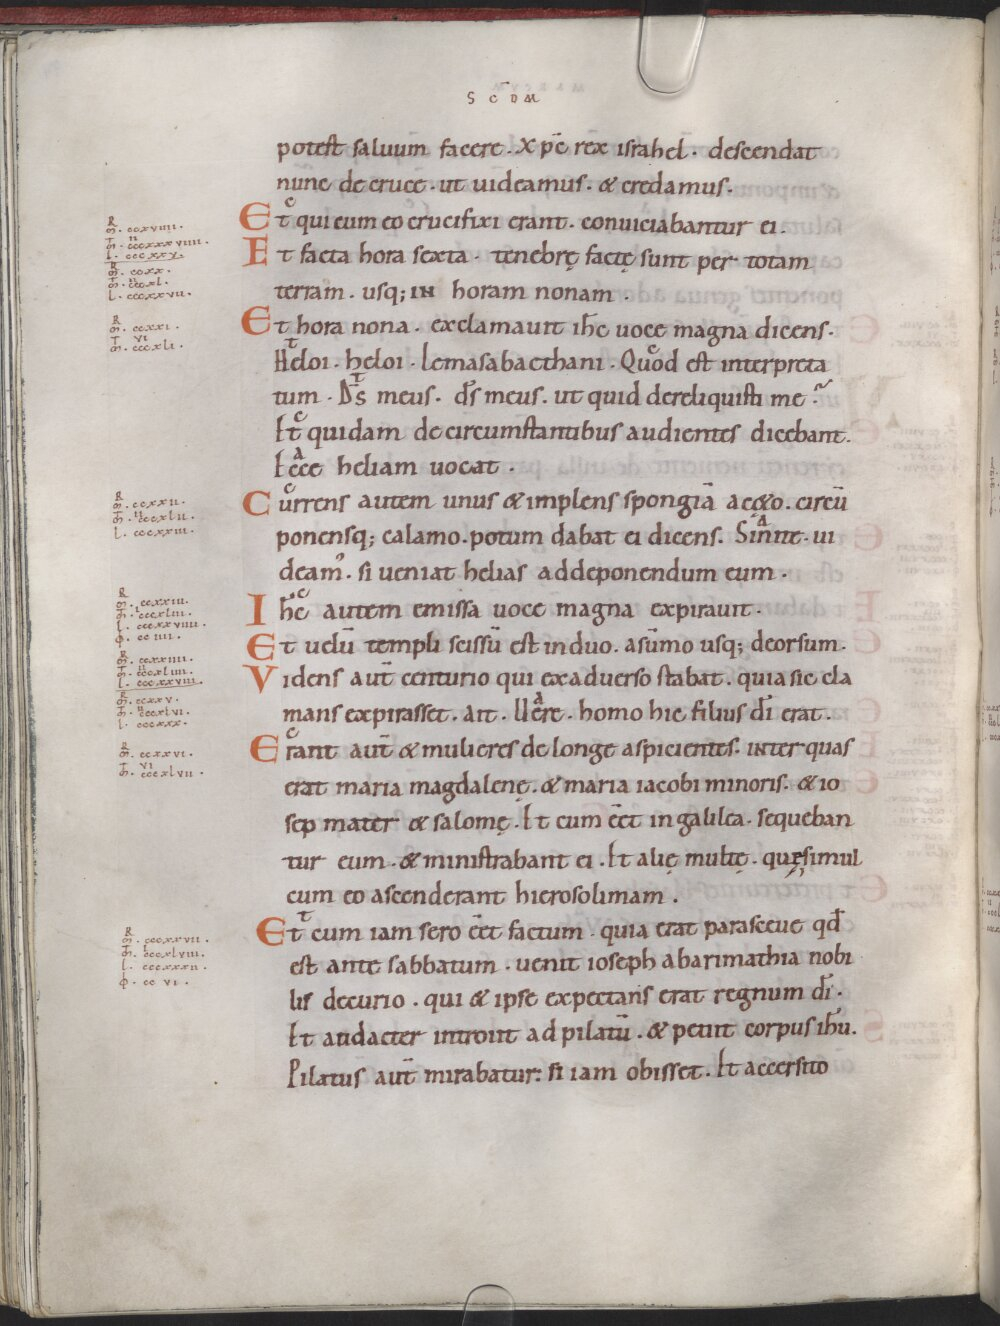 SCDM
potest saluum facere. Xp̄c rex israhel. descendat
nunc de cruce. ut uideamus. & credamus.
Et qui cum eo crucifixi erant. conuiciabantur ei.
Et facta hora sexta. tenebrę factę sunt per totam
terram. usq; in horam nonam.
Et hora nona. exclamauit ih̄c uoce magna dicens.
Heloi. heloi. lemasabacthani. Quod est interpreta
tum. D̄s meus. d̄s meus. ut quid dereliquisti me?
Et quidam de circumstantibus audientes dicebant.
Ecce heliam uocat.
Currens autem unus & implens spongiā ac&o. circū
ponensq; calamo. potum dabat ei dicens. Sinite. ui
deam'. si ueniat helias addeponendum eum.
Ih̄c autem emissa uoce magna expirauit.
Et uelū templi scissū est in duo. a sūmo usq; deorsum.
Videns aut̄ centurio qui exaduerso stabat. quia sic cla
mans expirasset. ait. Uere. homo hic filius dī erat.
Erant aut̄ & mulieres de longe aspicientes. inter quas
erat maria magdalenę. & maria iacobi minoris. & io
sep mater & salomę. Et cum eēt in galilea. sequeban
tur eum. & ministrabant ei. Et alię multę. quę simul
cum eo ascenderant hierosolimam.
Et cum iam sero eēt factum. quia erat parasceue qd̄
est ante sabbatum. uenit ioseph abarimathia nobi
lis decurio. qui & ipse expectans erat regnum dī.
Et audacter introiit ad pilatū. & petiit corpus ih̄u.
Pilatus aut̄ mirabatur. si iam obisset. Et accersito